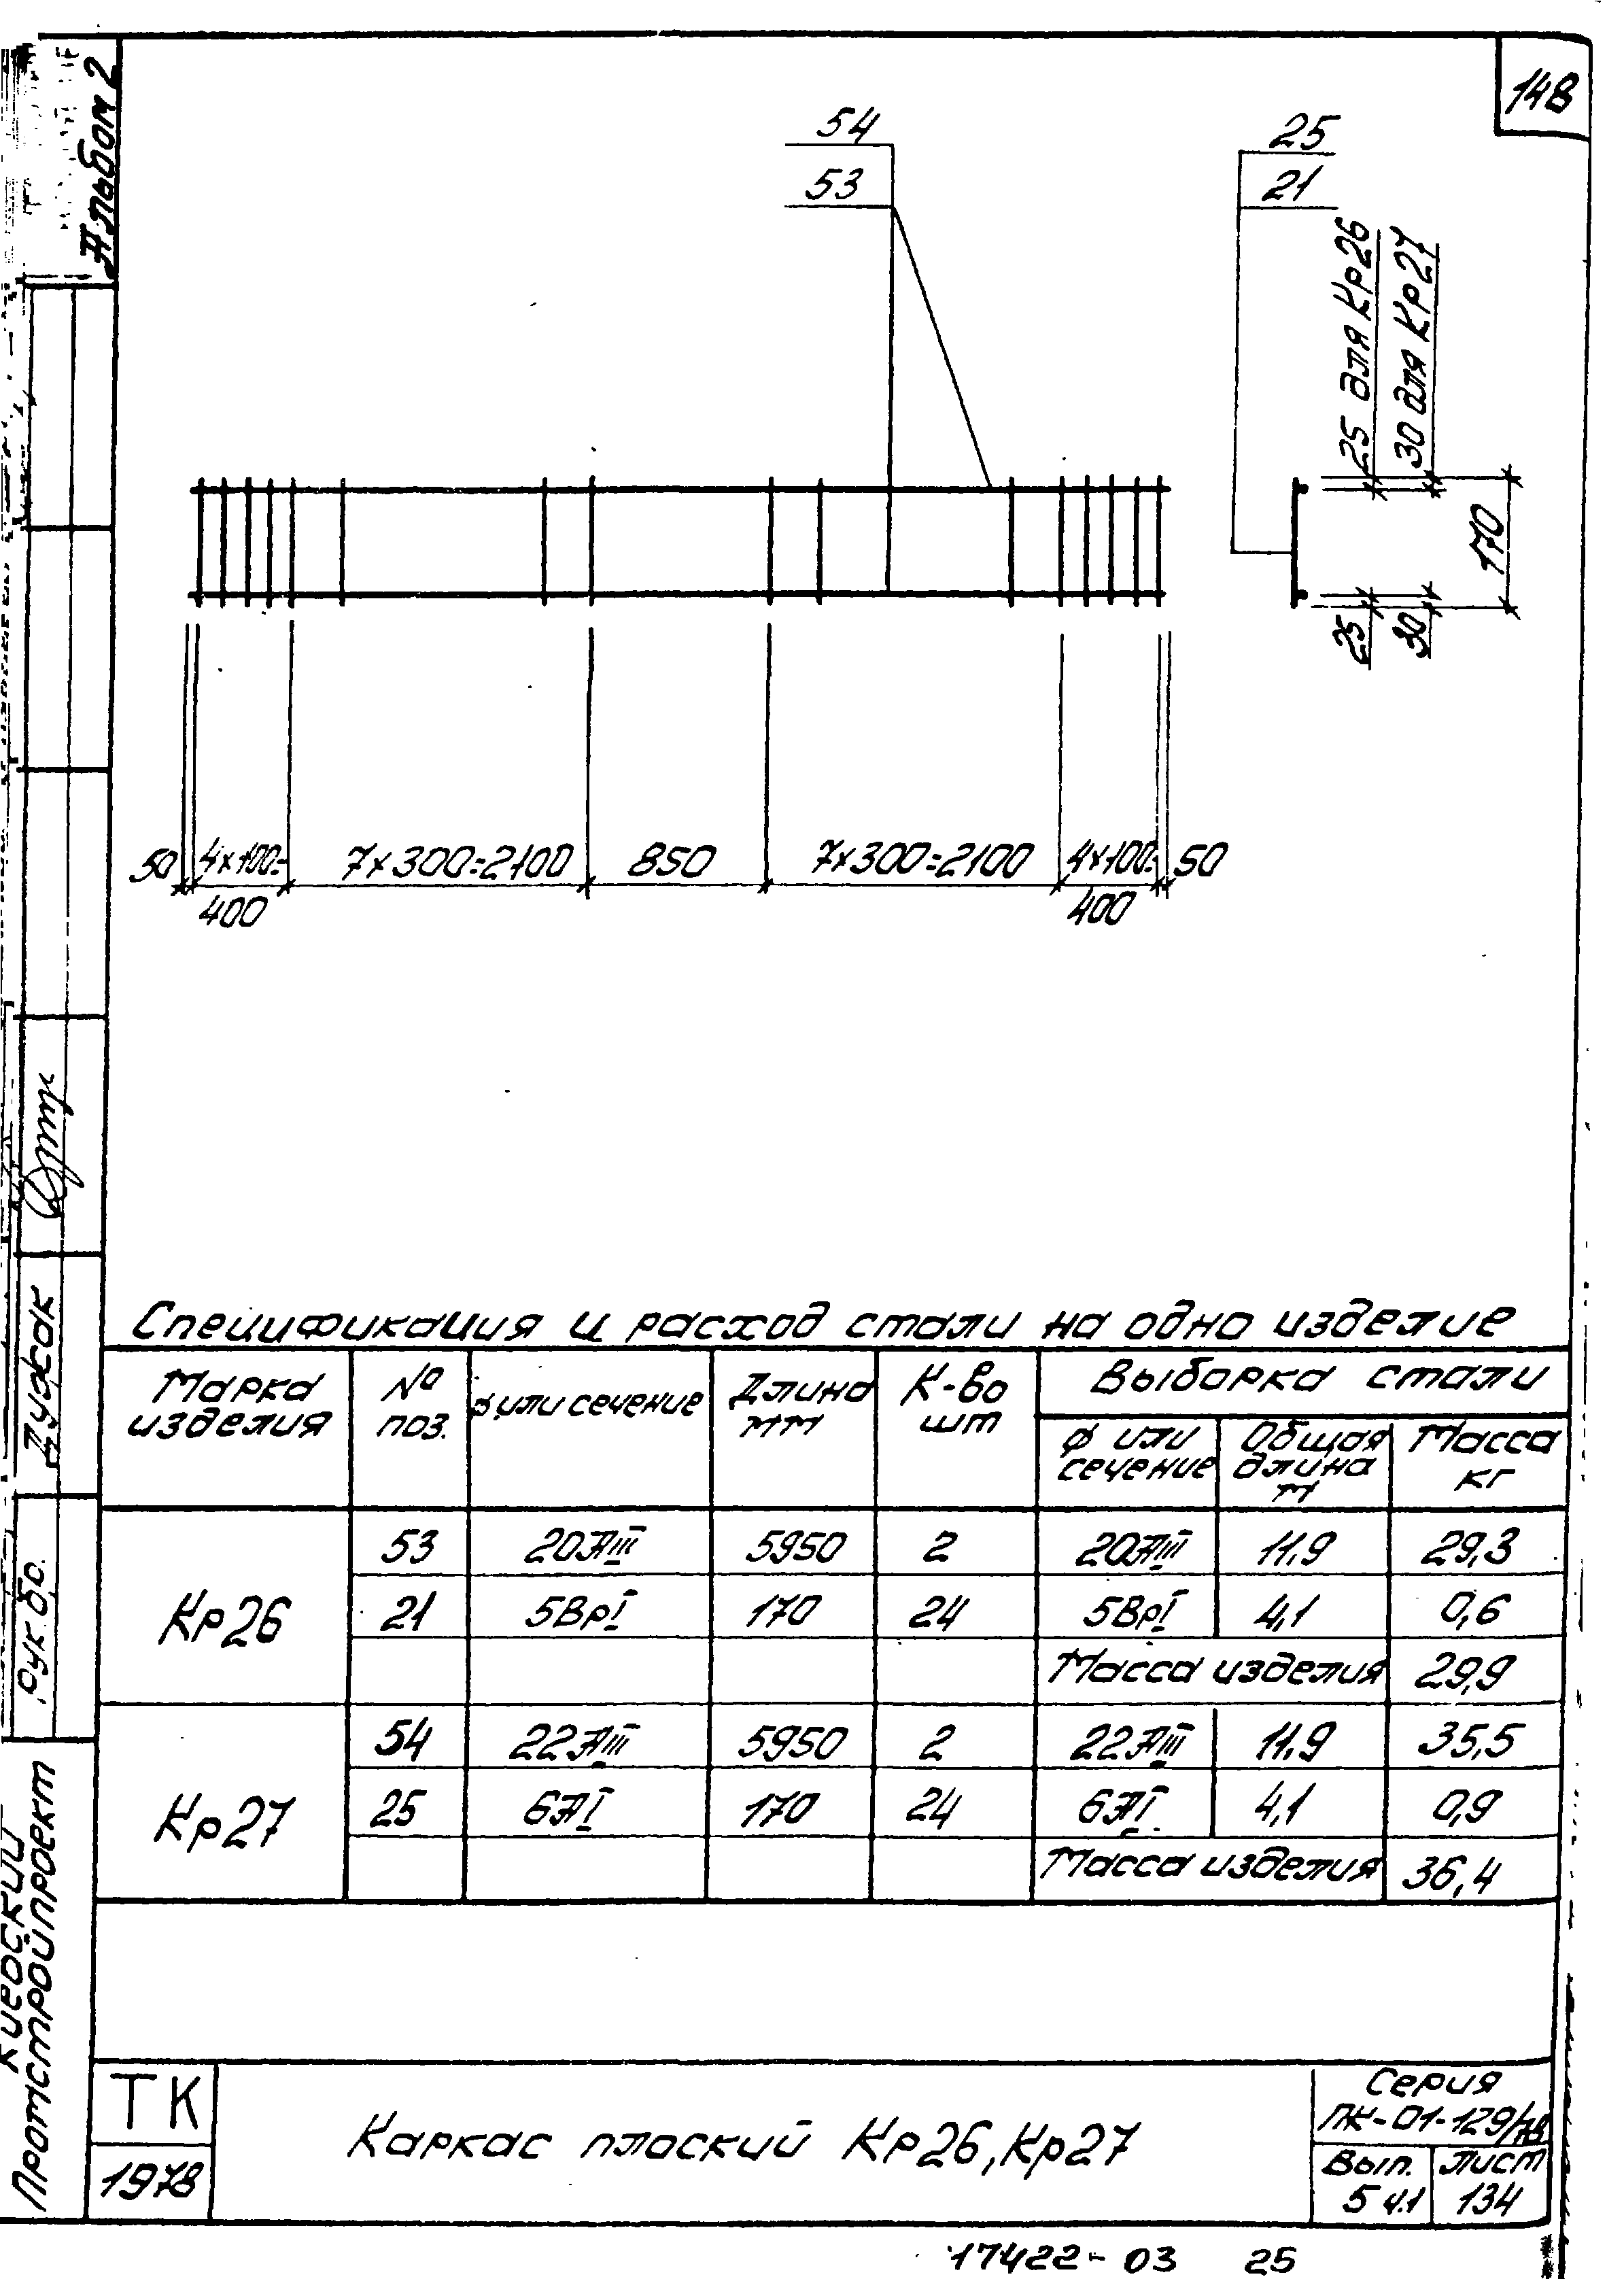 Альбом 2
148
54
53
25
21
25 для Кр26
30 для Кр27
170
25
30
50
4х100=
400
7х300=2100
850
7х300=2100
4х100=
400
50
Спецификация и расход стали на одно изделие
Марка изделия | № поз. | ф или сечение | Длина мм | К-во шт | Выборка стали
ф или сечение | Общая длина м | Масса кг
Кр26
53 | 20АIII | 5950 | 2 | 20АIII | 11,9 | 29,3
21 | 5ВрI | 170 | 24 | 5ВрI | 4,1 | 0,6
Масса изделия | 29,9
Кр27
54 | 22АIII | 5950 | 2 | 22АIII | 11,9 | 35,5
25 | 6АI | 170 | 24 | 6АI | 4,1 | 0,9
Масса изделия | 36,4
Рук. бр.
Дужак
Киевский
Промстройпроект
ТК
1978
Каркас плоский Кр26, Кр27
Серия
ПК-01-129/78
Вып.
5 ч.1
Лист
134
17422-03 25